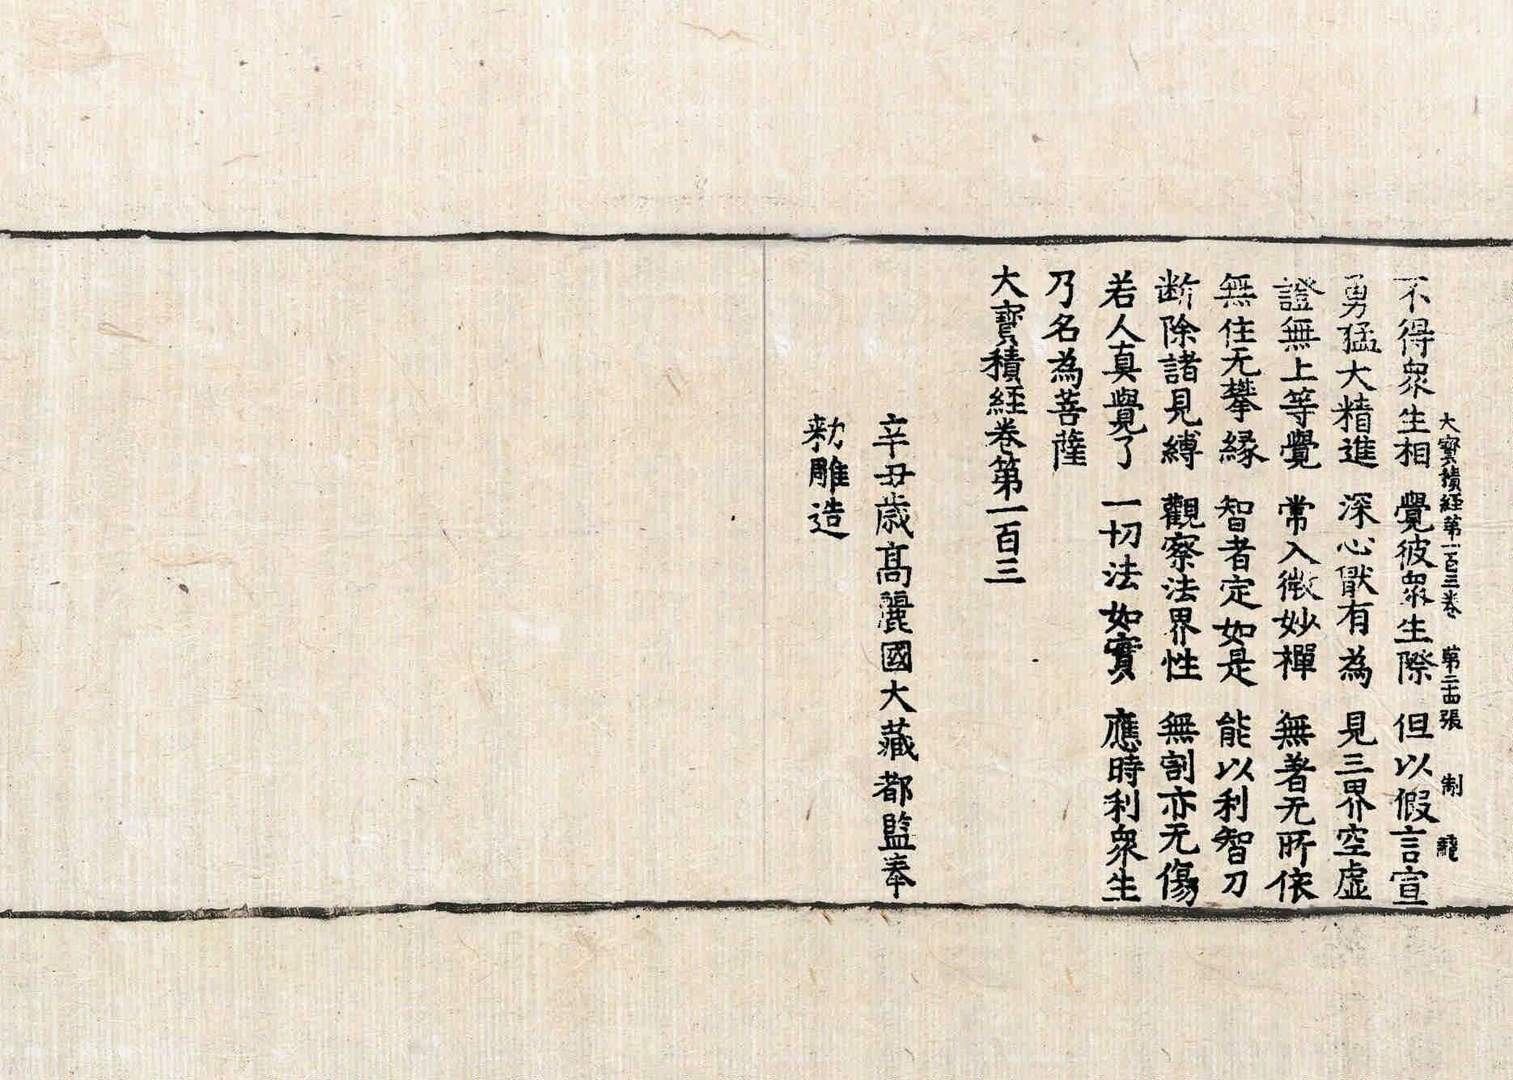 大寶積經第一百三卷 第二十四張 制
不得衆生相 覺彼衆生際 但以假言宣
勇猛大精進 深心猒有為 見三界空虛
證無上等覺 常入微妙禪 無著无所依
無住无攀緣 智者定如是 能以利智刀
断除諸見縛 觀察法界性 無割亦无傷
若人真覺了 一切法如實 應時利衆生
乃名為菩薩
大寶積經卷第一百三
辛丑歲高麗國大藏都監奉
勑雕造